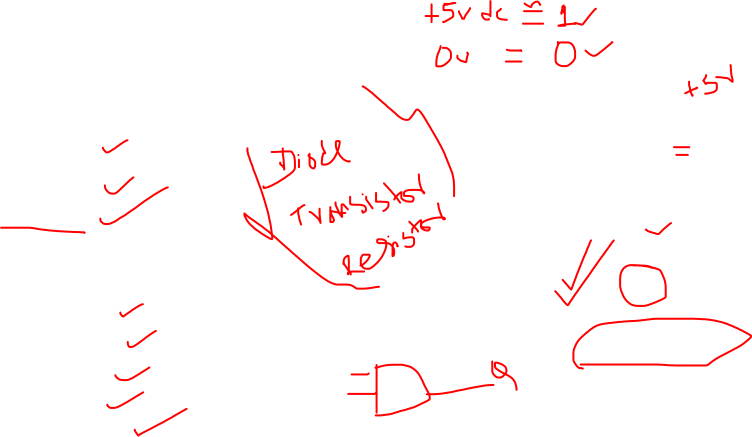 +5v dc ≅ 1
0v = 0
+5v
=
Diode
Transistor
Resistor
Q